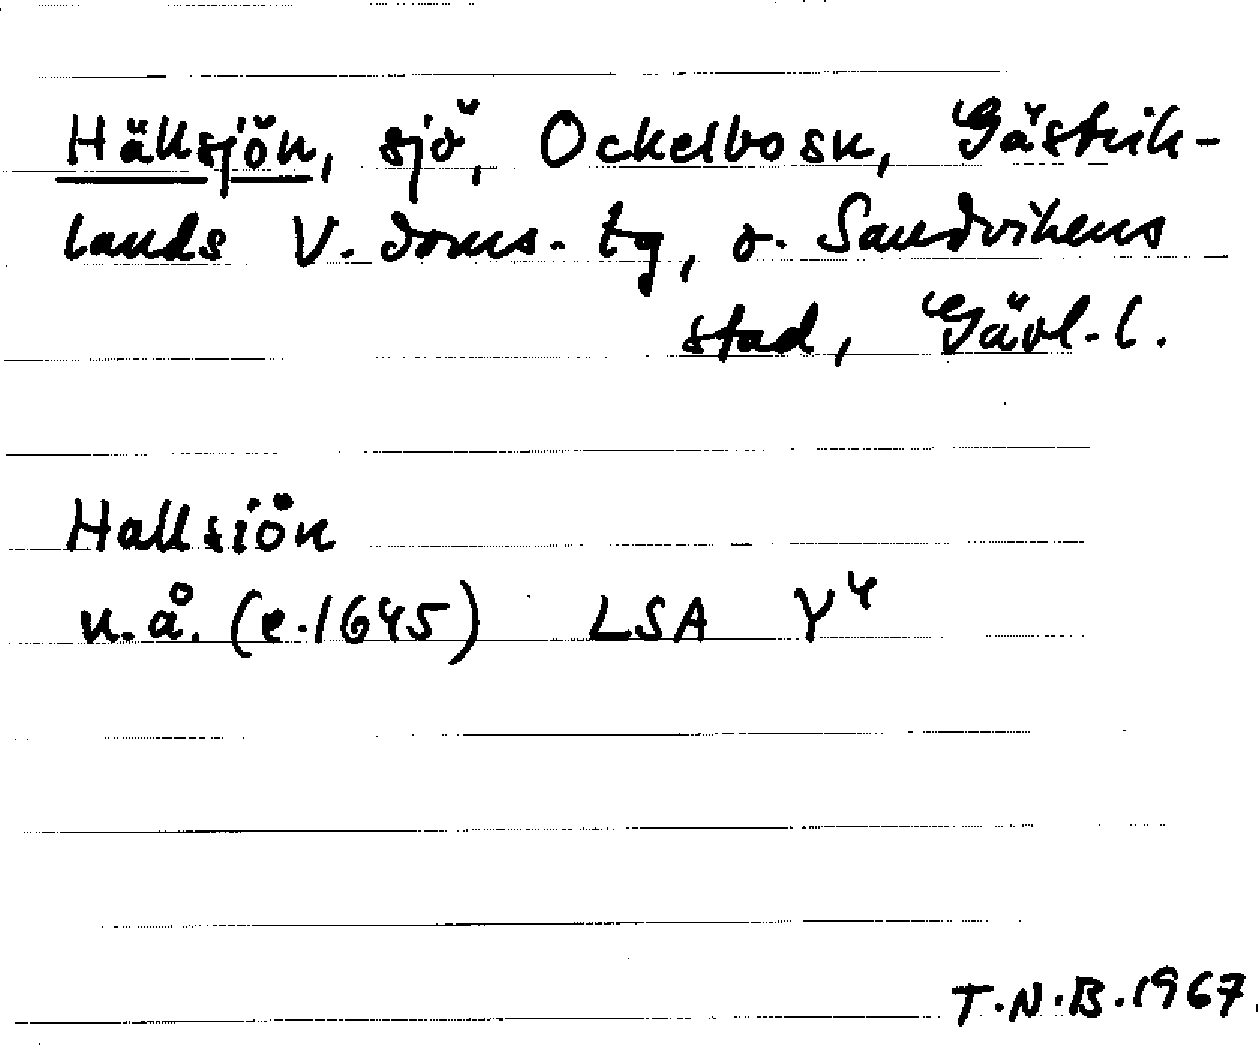 Hällsjön, sjö, Ockelbo sn, Gästrik-
lands V. doms. tg, o. Sandvikens
stad, Gävl. l.
Hallsiön
u.å. (e. 1645) LSA Y⁴
T.N.B. 1967.